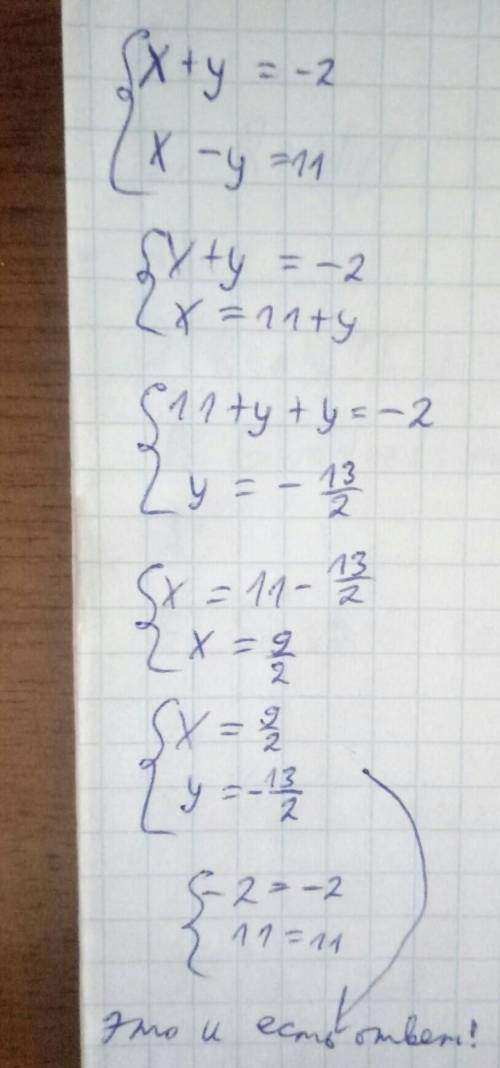 x + y = -2
x - y = 11
x + y = -2
x = 11 + y
11 + y + y = -2
y = - 13/2
x = 11 - 13/2
x = 9/2
x = 9/2
y = - 13/2
-2 = -2
11 = 11
Это и есть ответ!